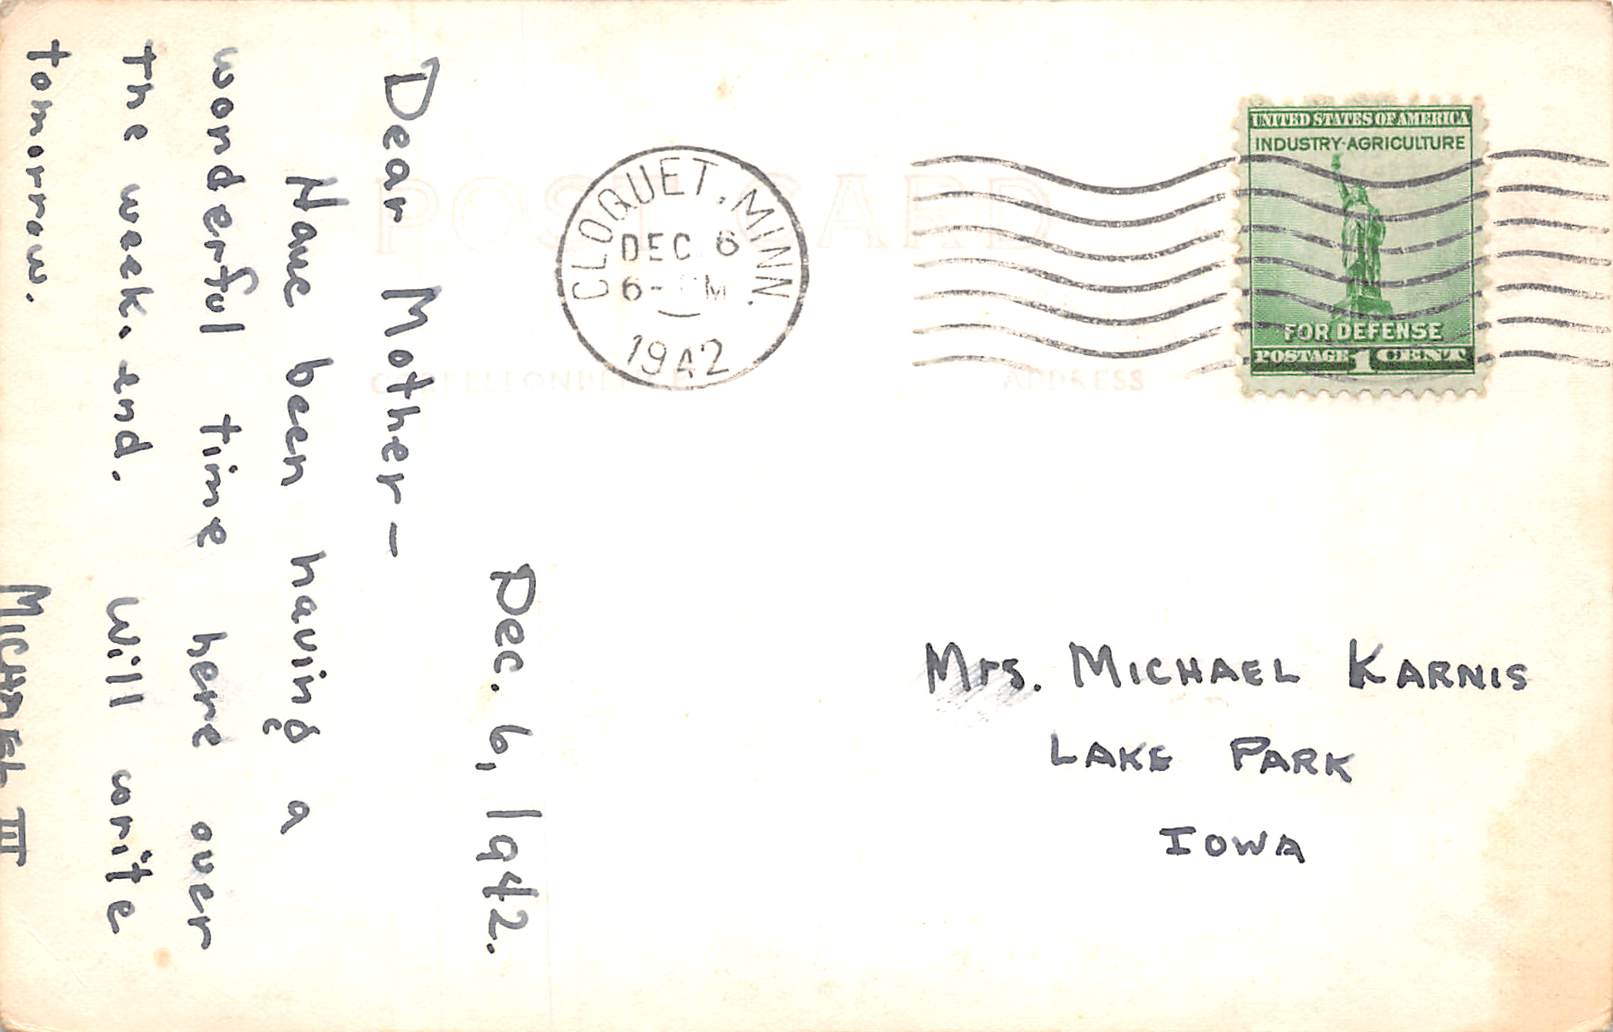 Dec. 6, 1942.
Dear Mother—
Have been having a
wonderful time here over
the week-end. Will write
tomorrow.
MICHAEL III
POST CARD
CLOQUET, MINN.
DEC 6
6- PM
1942
CORRESPONDENCE
ADDRESS
UNITED STATES OF AMERICA
INDUSTRY-AGRICULTURE
FOR DEFENSE
POSTAGE 1 CENT
Mrs. MICHAEL KARNIS
LAKE PARK
IOWA